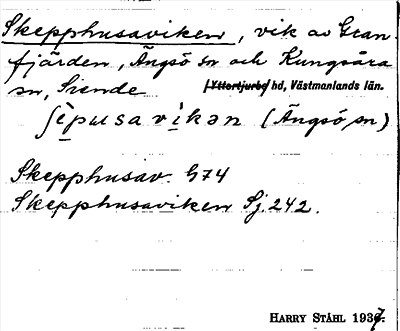 Skepphusaviken, vik av Gran-
fjärden, Ängsö sn och Kungsåra
sn, Siende [Yttertjurbo] hd, Västmanlands län.
ʃèpusavìkən (Ängsö sn)
Skepphusav. G74
Skepphusaviken Sj. 242.
HARRY STÅHL 1937.